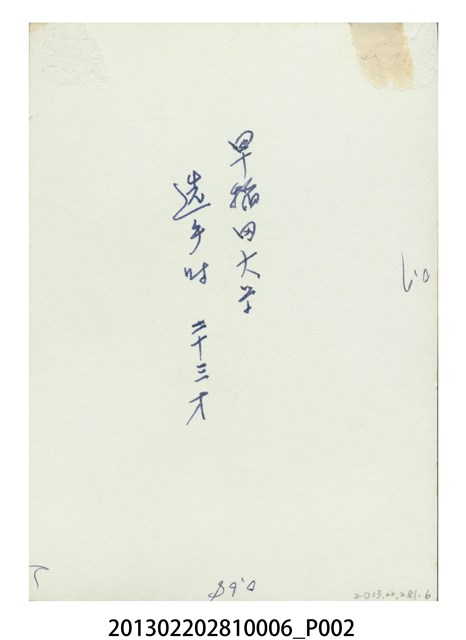 早稲田大学
選手時 二十三才
2013.02.0281.6
201302202810006_P002